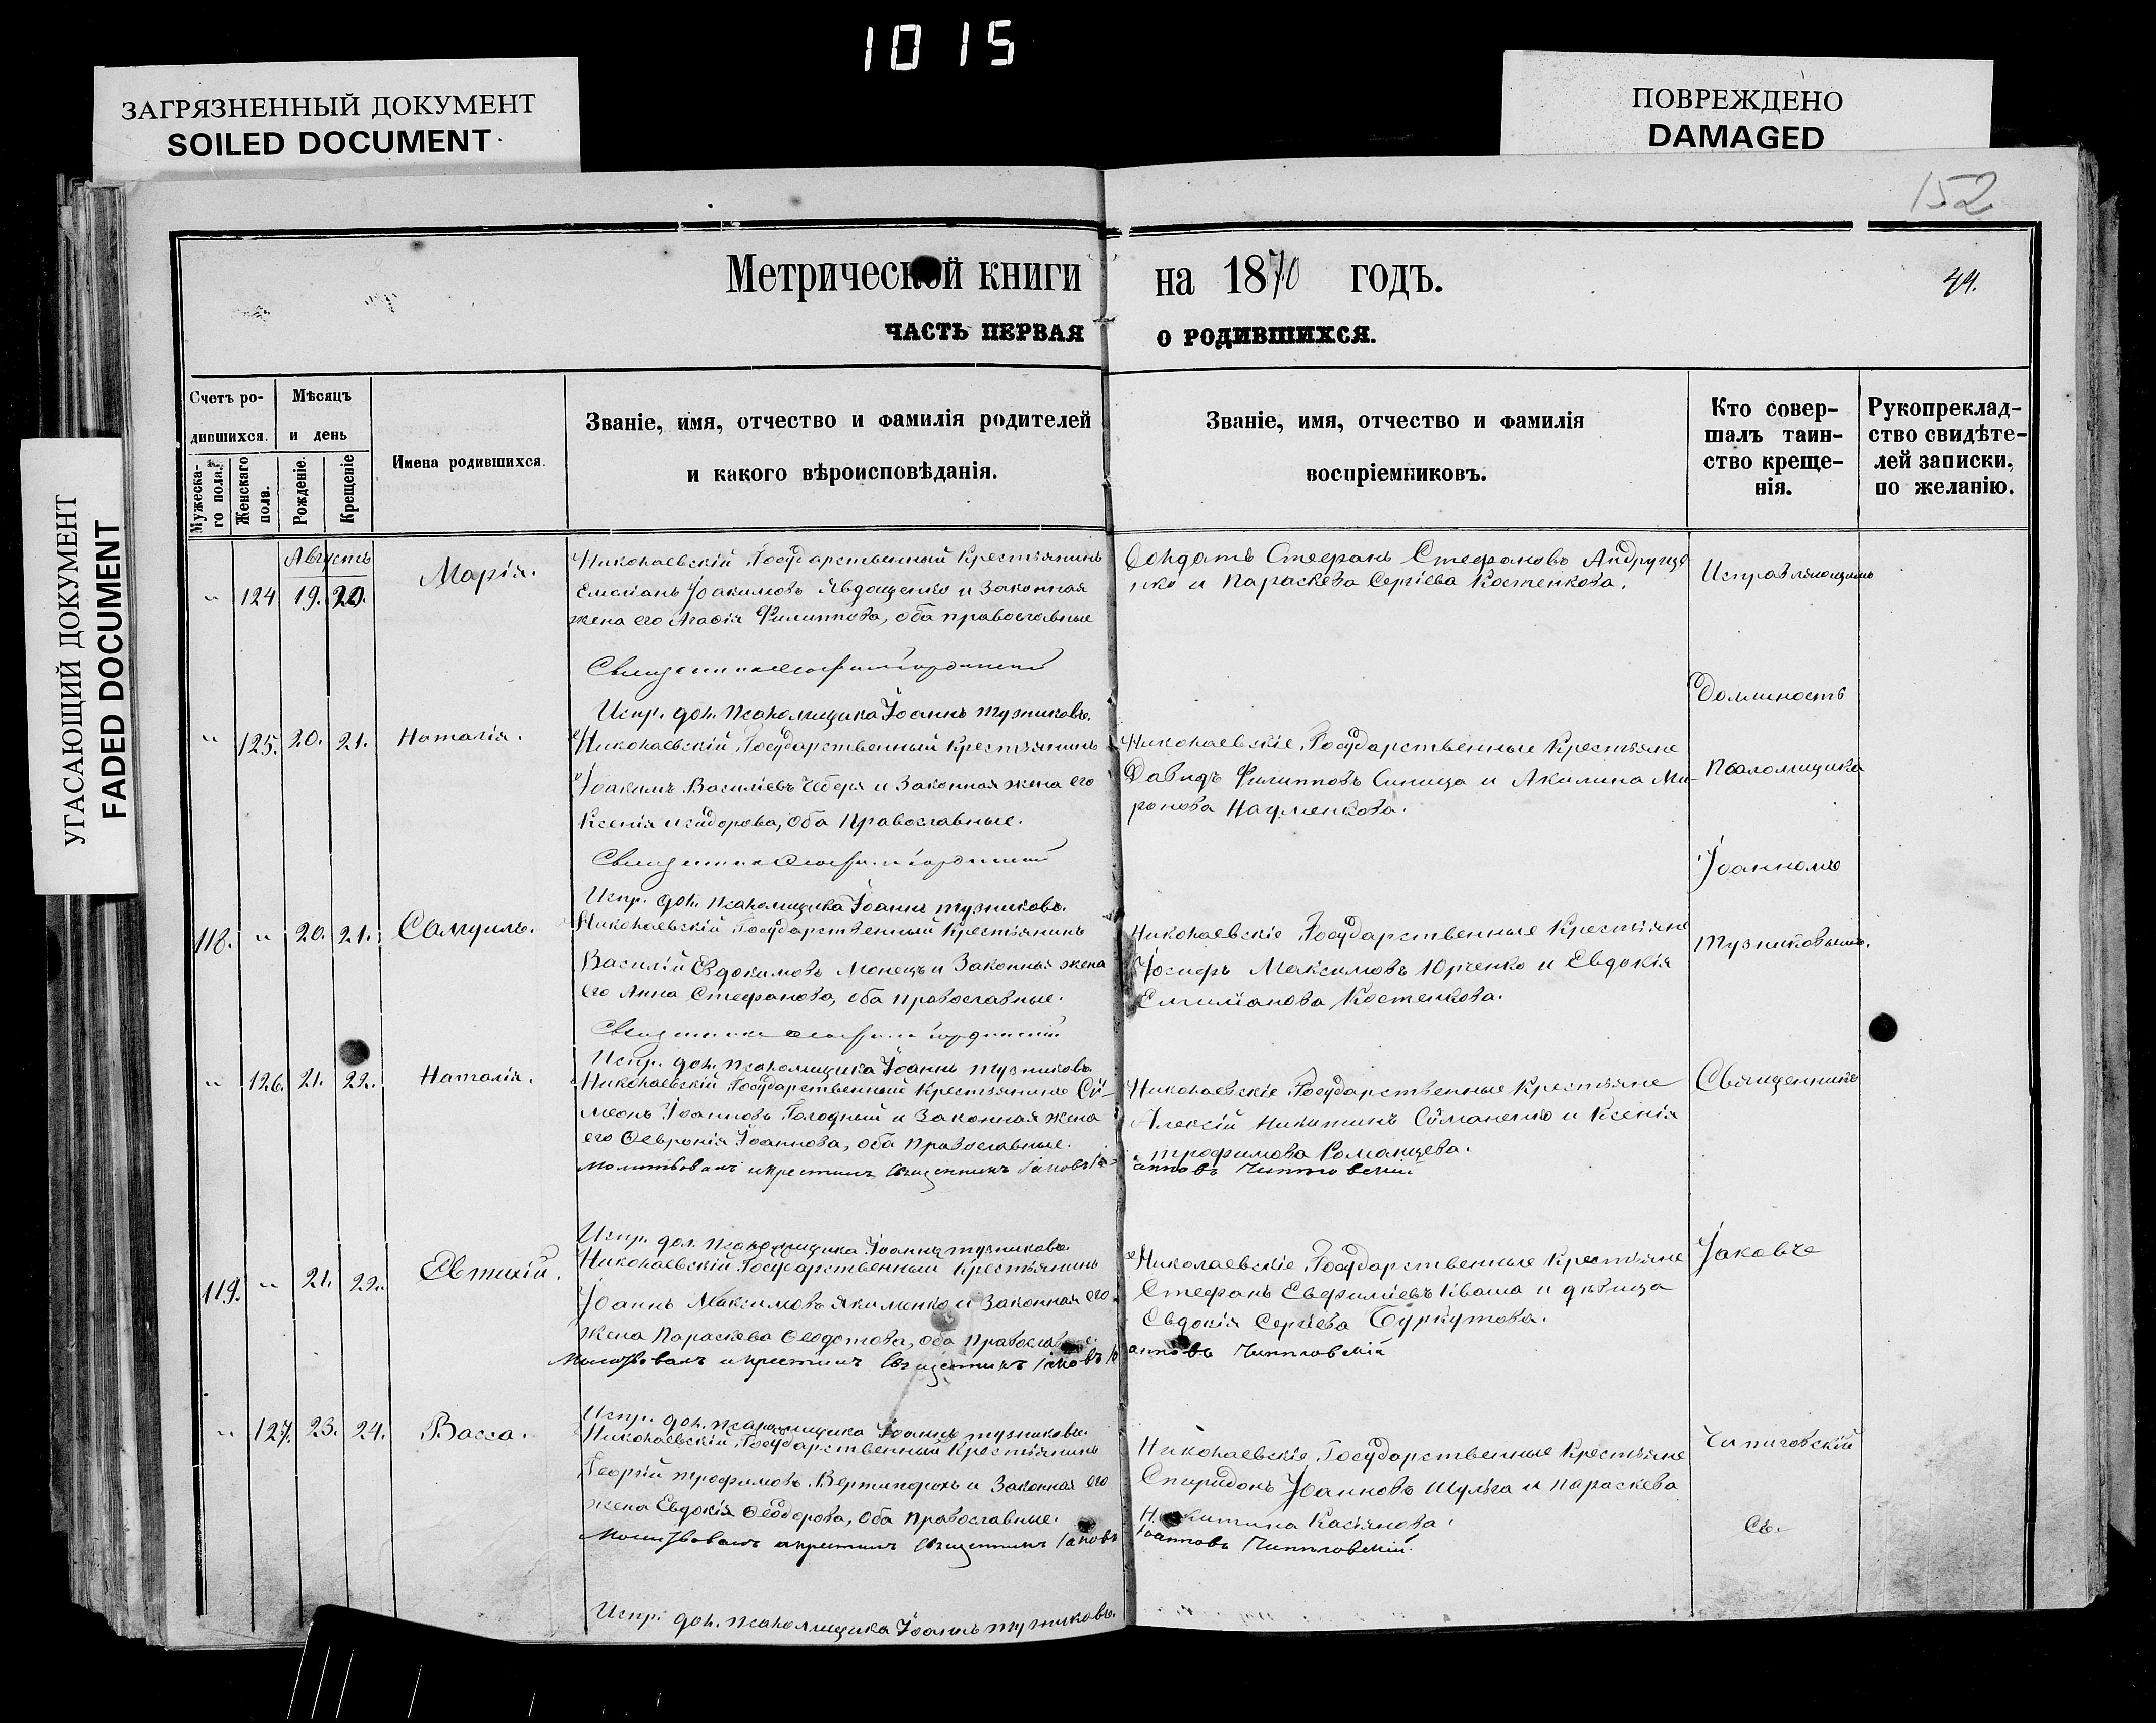 1015
ЗАГРЯЗНЕННЫЙ ДОКУМЕНТ
SOILED DOCUMENT
ПОВРЕЖДЕНО
DAMAGED
УГАСАЮЩИЙ ДОКУМЕНТ
FADED DOCUMENT
152
Метрической книги на 1870 годъ.
ЧАСТЬ ПЕРВАЯ О РОДИВШИХСЯ.
Счетъ родившихся.
Мужескаго пола.
Женскаго пола.
Мѣсяцъ и день
Рожденіе.
Крещеніе
Имена родившихся.
Званіе, имя, отчество и фамилія родителей
и какого вѣроисповѣданія.
Званіе, имя, отчество и фамилія
воспріемниковъ.
Кто совер-
шалъ таин-
ство креще-
нія.
Рукоприклад-
ство свидѣте-
лей записки
по желанію.
Августъ
„ 124 19. 20. Марія.
Николаевскій Государственный Крестьянинъ
Емеліанъ Іоакимовъ Явдощенко и Законная
жена его Агафія Филиппова, оба православные
Солдатъ Стефанъ Стефановъ Андруще-
нко и Параскева Сергіева Костенкова.
Исправляющимъ
Должность
Псаломщика
Іоанномъ
Тузниковымъ.
Священникъ
Испр. дол. Псаломщика Іоаннъ Тузниковъ.
„ 125. 20. 21. Наталія.
Николаевскій Государственный Крестьянинъ
Іоакимъ Василіевъ Чеберя и Законная жена его
Ксенія Исидорова, оба Православные.
Николаевскіе Государственные Крестьяне
Давидъ Филипповъ Синица и Акилина Ми-
ронова Науменкова.
Священникъ
Испр. дол. Псаломщика Іоаннъ Тузниковъ.
118. „ 20. 21. Самуилъ.
Николаевскій Государственный Крестьянинъ
Василій Евдокимовъ Монецъ и Законная жена
его Анна Стефанова, оба православные.
Николаевскіе Государственные Крестьяне
Іосифъ Максимовъ Юрченко и Евдокія
Емиліанова Костенкова.
Священникъ
Испр. дол. Псаломщика Іоаннъ Тузниковъ.
„ 126. 21. 22. Наталія.
Николаевскій Государственный Крестьянинъ Си-
меонъ Іоанновъ Голодный и Законная жена
его Февронія Іоаннова, оба Православные.
Николаевскіе Государственные Крестьяне
Алексій Никитинъ Симаненко и Ксенія
Трофимова Романцева.
Священникъ
Молитвовалъ и крестилъ Священникъ Іаковъ Іо-
анновъ Чипиговскій
Испр. дол. Псаломщика Іоаннъ Тузниковъ.
119. „ 21. 22. Евтихій.
Николаевскій Государственный Крестьянинъ
Іоаннъ Максимовъ Якименко и Законная его
жена Параскева Феодотова, оба Православные.
Николаевскіе Государственные Крестьяне
Стефанъ Евфиміевъ Кваша и дѣвица
Евдокія Сергіева Буркутова.
Іаковъ
Молитвовалъ и крестилъ Священникъ Іаковъ Іо-
анновъ Чипиговскій
Испр. дол. Псаломщика Іоаннъ Тузниковъ.
„ 127. 23. 24. Васса.
Николаевскій Государственный Крестьянинъ
Георгій Трофимовъ Вертипорохъ и Законная его
жена Евдокія Феодорова, Оба Православные.
Николаевскіе Государственные Крестьяне
Спиридонъ Іоанновъ Шульга и Параскева
Никитина Касьянова.
Чипиговскій
Съ.
Молитвовалъ и крестилъ Священникъ Іаковъ
Іоанновъ Чипиговскій.
Испр. дол. Псаломщика Іоаннъ Тузниковъ.